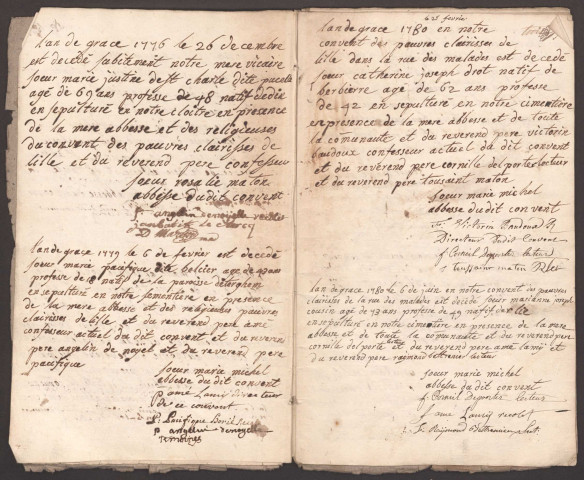 lan de grace 1776 le 26 decembre
est decedé subitement notre mere vicaire
soeur marie justine de st charle dite pucelle
agé de 69 ans professe de 48 natif de die
en sepulture en notre cloitre en presence
de la mere abbesse et des religieuses
du convent des pauvres clairisses de
lille et du reverend pere confesseur
soeur rosalie maton
abbesse du dit convent
lan de grace 1779 le 6 de fevrier est decedé
soeur marie pacifique dite belcier age de
professe de natif de la paroise
en sepulture en notre semontiere en presence
de la mere abbesse et des religieuses pauvres
clairisses de lille et du reverend pere ame
confesseur actuel du dit convent et du reveren
pere angelin de noyel et du reverend pere
pacifique
soeur marie michel
abbesse du dit convent
p ame Directeur
de ce couvent
f. Pacifique
p angelin denoyelle
le 25 fevrie
lan de grace 1780 en notre
convent des pauvres clairisses de
lille dans la rue des malades est decedé
soeur catherine joseph drot natif de
berbierre age de 62 ans professe
de 42 en sepulture en notre cimentiere
en presence de la mere abbesse et de toute
la comunaute et du reverend pere victorin
baudoux confesseur actuel du dit convent
et du reverend pere cornille delporte lecteur
et du reverend pere tousaint maton
soeur marie michel
abbesse du dit convent
Directeur dudit Couvent
f. Corneil lecteur
f. toussaint maton
lan de grace 1780 le 6 de juin en notre convent des pauvres
clairisses de la rue des malades est decedé soeur marianne
cousin age de 73 ans professe de 49 natif de lille
en sepulture en notre cimentiere en presence de la mere
abbesse et de toute la comunaute et du reverend pere
cornille delporte lecteur et du reverend pere ame lamy et
du reverend pere raimond lecteur
soeur marie michel
abbesse du dit convent
f. Corneil lecteur
f. ame recolet
f. Raymond